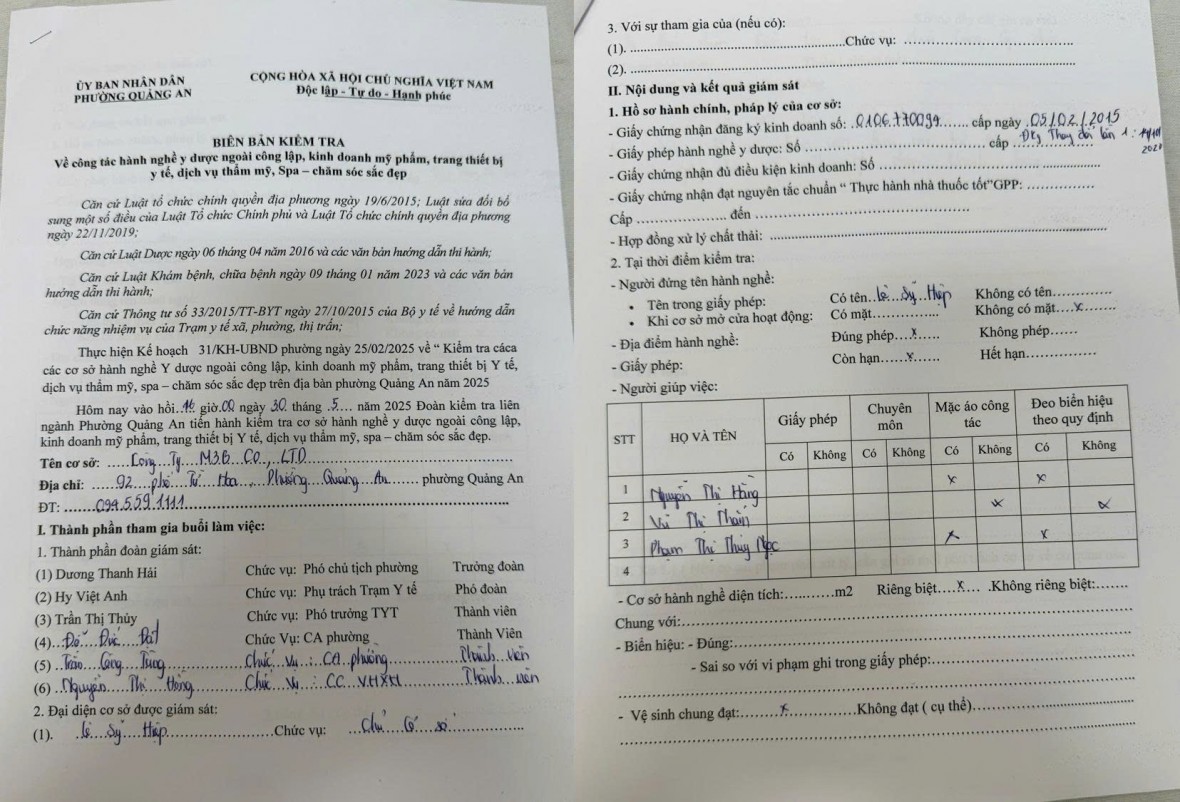 ỦY BAN NHÂN DÂN
PHƯỜNG QUẢNG AN
CỘNG HÒA XÃ HỘI CHỦ NGHĨA VIỆT NAM
Độc lập - Tự do - Hạnh phúc
BIÊN BẢN KIỂM TRA
Về công tác hành nghề y dược ngoài công lập, kinh doanh mỹ phẩm, trang thiết bị
y tế, dịch vụ thẩm mỹ, Spa – chăm sóc sắc đẹp
Căn cứ Luật tổ chức chính quyền địa phương ngày 19/6/2015; Luật sửa đổi bổ
sung một số điều của Luật Tổ chức Chính phủ và Luật Tổ chức chính quyền địa phương
ngày 22/11/2019;
Căn cứ Luật Dược ngày 06 tháng 04 năm 2016 và các văn bản hướng dẫn thi hành;
Căn cứ Luật Khám bệnh, chữa bệnh ngày 09 tháng 01 năm 2023 và các văn bản
hướng dẫn thi hành;
Căn cứ Thông tư số 33/2015/TT-BYT ngày 27/10/2015 của Bộ y tế về hướng dẫn
chức năng nhiệm vụ của Trạm y tế xã, phường, thị trấn;
Thực hiện Kế hoạch 31/KH-UBND phường ngày 25/02/2025 về “ Kiểm tra cáca
các cơ sở hành nghề Y dược ngoài công lập, kinh doanh mỹ phẩm, trang thiết bị Y tế,
dịch vụ thẩm mỹ, spa – chăm sóc sắc đẹp trên địa bàn phường Quảng An năm 2025
Hôm nay vào hồi..16 giờ.00 ngày 30 tháng .5.... năm 2025 Đoàn kiểm tra liên
ngành Phường Quảng An tiến hành kiểm tra cơ sở hành nghề y dược ngoài công lập,
kinh doanh mỹ phẩm, trang thiết bị Y tế, dịch vụ thẩm mỹ, spa – chăm sóc sắc đẹp.
Tên cơ sở: Công Ty M3B CO., LTD
Địa chỉ: 92 phố Từ Hoa, Phường Quảng An phường Quảng An
ĐT: 094.559.1111
I. Thành phần tham gia buổi làm việc:
1. Thành phần đoàn giám sát:
(1) Dương Thanh Hải Chức vụ: Phó chủ tịch phường Trưởng đoàn
(2) Hy Việt Anh Chức vụ: Phụ trách Trạm Y tế Phó đoàn
(3) Trần Thị Thủy Chức vụ: Phó trưởng TYT Thành viên
(4) Đỗ Đức Đạt Chức Vụ: CA phường Thành Viên
(5) Công Tùng Chức vụ: CA phường Thành viên
(6) Nguyễn Thị Hồng Chức vụ: CC VHXH Thành viên
2. Đại diện cơ sở được giám sát:
(1). Lê Sỹ Hiệp Chức vụ: Chủ cơ sở
3. Với sự tham gia của (nếu có):
(1). Chức vụ:
(2).
II. Nội dung và kết quả giám sát
1. Hồ sơ hành chính, pháp lý của cơ sở:
- Giấy chứng nhận đăng ký kinh doanh số: 0106770099 cấp ngày 05/02/2015
- Giấy phép hành nghề y dược: Số cấp Đky Thay đổi lần 1:
- Giấy chứng nhận đủ điều kiện kinh doanh: Số
- Giấy chứng nhận đạt nguyên tắc chuẩn “ Thực hành nhà thuốc tốt”GPP:
Cấp đến
- Hợp đồng xử lý chất thải:
2. Tại thời điểm kiểm tra:
- Người đứng tên hành nghề:
• Tên trong giấy phép: Có tên Lê Sỹ Hiệp Không có tên
• Khi cơ sở mở cửa hoạt động: Có mặt Không có mặt x
- Địa điểm hành nghề: Đúng phép x Không phép
- Giấy phép: Còn hạn x Hết hạn
- Người giúp việc:
STT HỌ VÀ TÊN Giấy phép Chuyên môn Mặc áo công tác Đeo biển hiệu theo quy định
Có Không Có Không Có Không Có Không
1 Nguyễn Thị Hằng x x
2 Vũ Thị Thắm x x
3 Phạm Thị Thúy Ngọc x x
4
- Cơ sở hành nghề diện tích: m2 Riêng biệt x .Không riêng biệt:
Chung với:
- Biển hiệu: - Đúng:
- Sai so với vi phạm ghi trong giấy phép:
- Vệ sinh chung đạt: x Không đạt ( cụ thể)